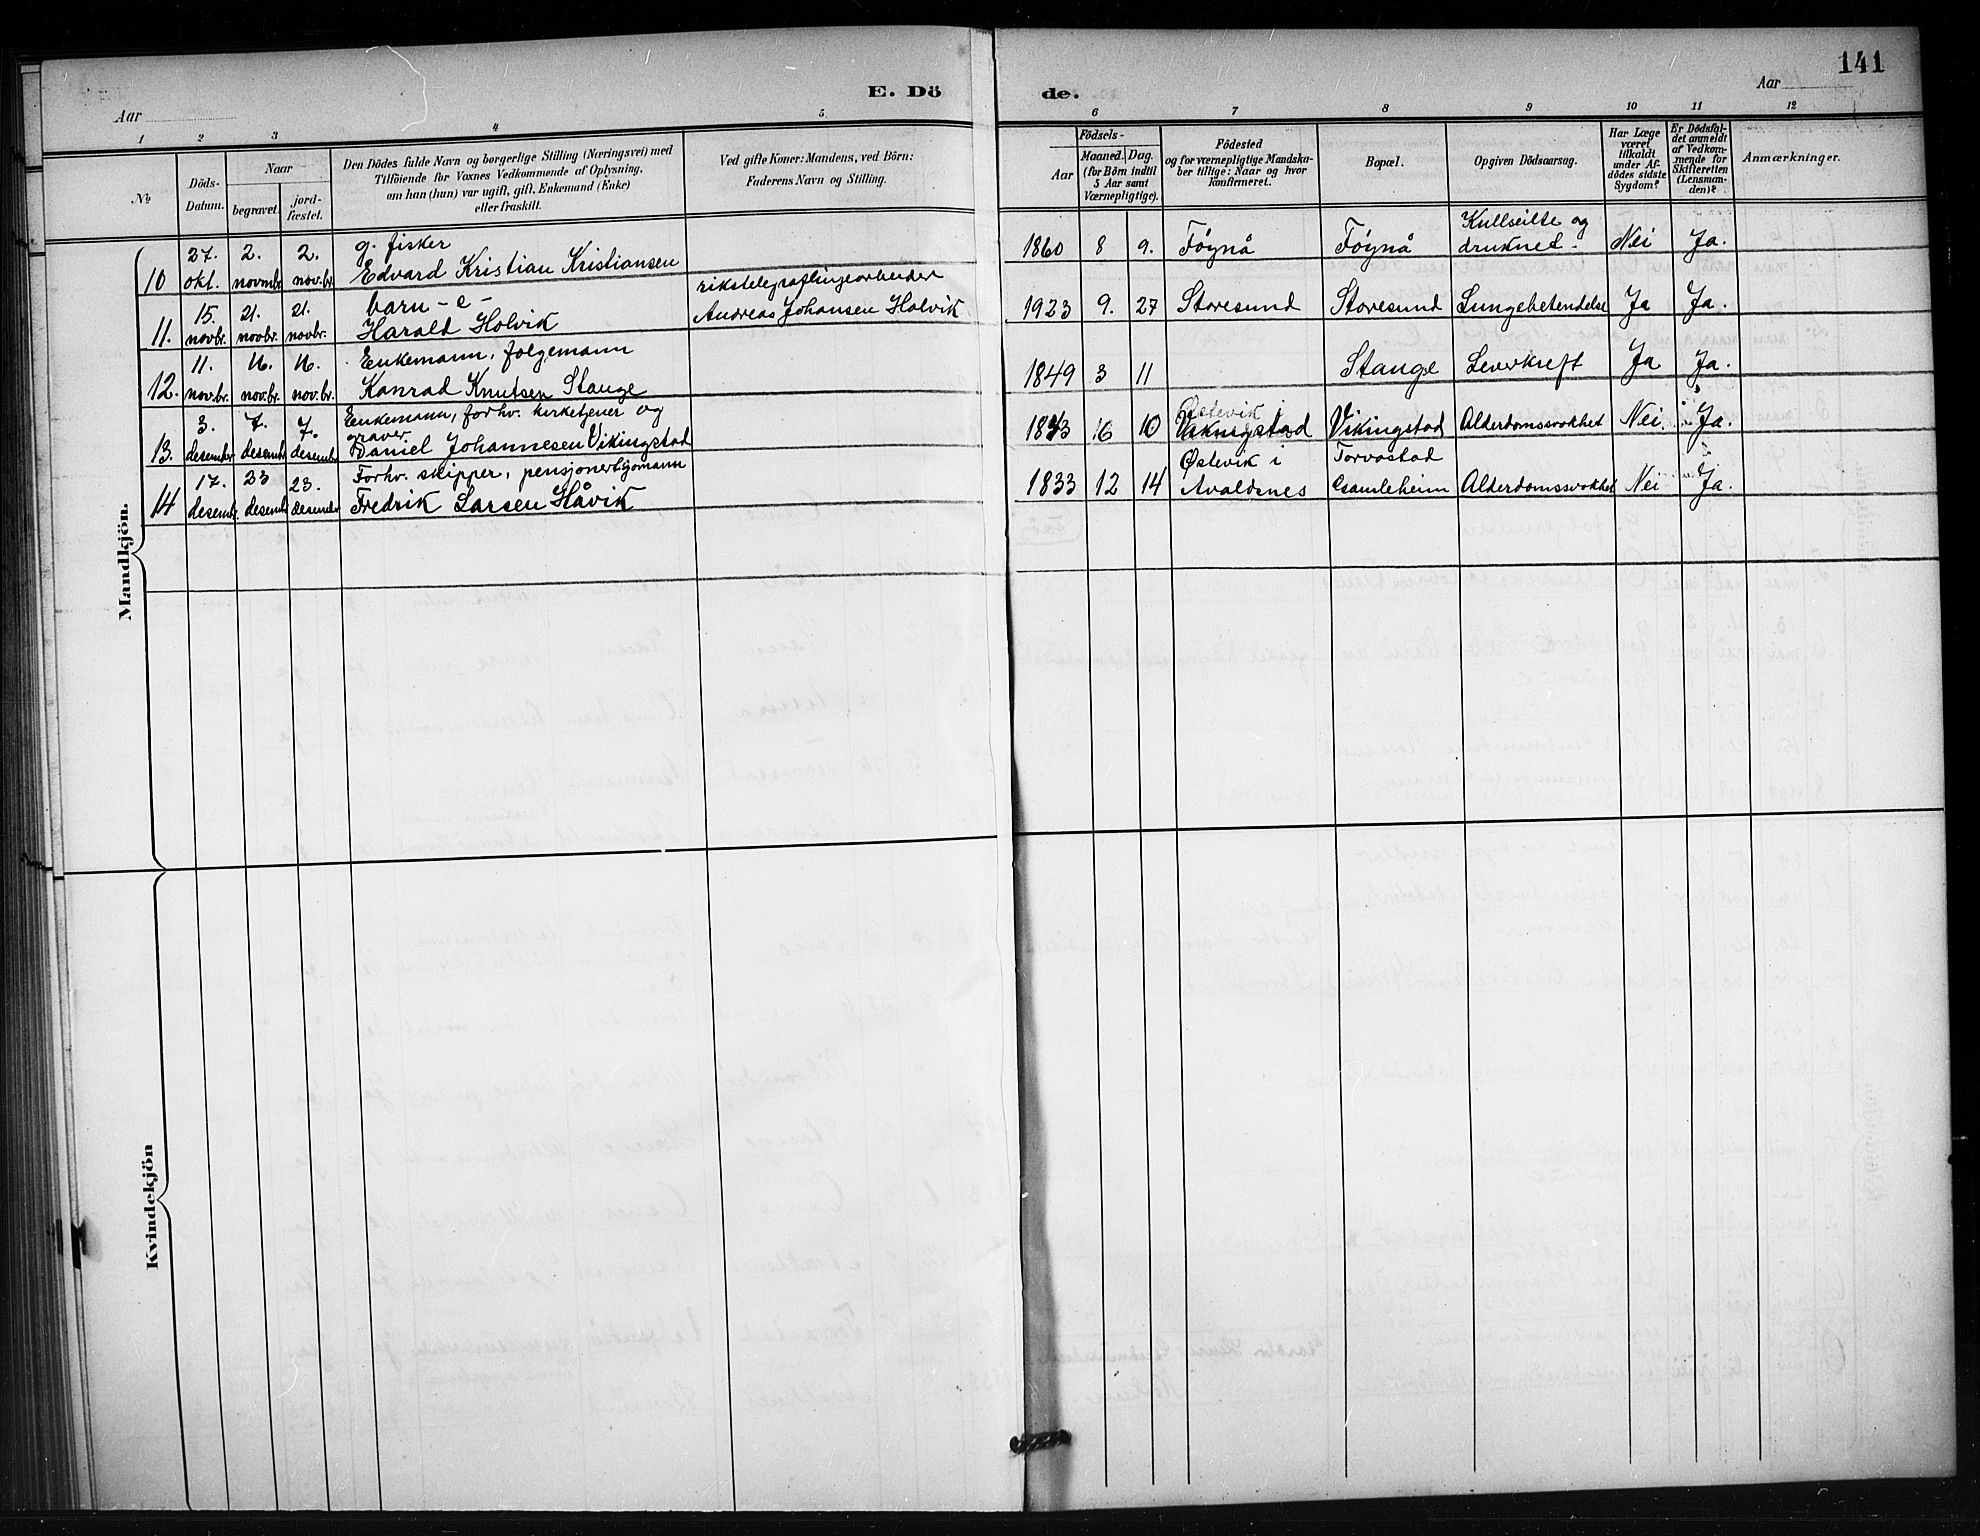 141
E. Dö de.
Aar
Aar
1 2 3 4 5 6 7 8 9 10 11 12
№
Döds-
Datum.
Naar
begravet.
jord-
fæstet.
Den Dödes fulde Navn og borgerlige Stilling (Næringsvei) med
Tilföiende for Voxnes Vedkommende af Oplysning,
om han (hun) var ugift, gift, Enkemand (Enke)
eller fraskilt.
Ved gifte Koner: Mandens, ved Börn:
Faderens Navn og Stilling.
Födsels-
Aar
Maaned. Dag.
(for Börn indtil
5 Aar samt
Værnepligtige).
Födested
og for værnepligtige Mandska-
ber tillige: Naar og hvor
konfirmeret.
Bopæl.
Opgiven Dödsaarsag.
Har Læge
været
tilkaldt
under Af-
dödes sidste
Sygdom?
Er Dödsfal-
det anmeldt
af Vedkom-
mende for
Skifteretten
(Lensman-
den)?
Anmærkninger.
Mandkjön.
27. 2. 2. g. fisker Kullseilte og
10 okt. novmbr. nov.br. Edvard Kristian Kristiansen 1860 8 9. Føynå Føynå druknet. Nei Ja.
15. 21. 21. barn - e - rikstelegraflinjearbeider
11. novbr. novbr. novbr. Harald Holvik Andreas Johansen Holvik 1923 9. 27 Storesund Storesund Lungebetendelse Ja Ja.
11. Enkemann, folgemann
12. nov.br. nov.br. nov.br. Konrad Knutsen Stange 1849 3 11 Stange Leverkreft Ja Ja.
3. 7. 7. Enkemann, forhv. kirketjener og
graver
13. desember desembr desember Daniel Johannesen Vikingstad 10 Vikingstad Alderdomssvakhet Nei Ja.
17. 23 23. Forhv. skipper, Østevik i Torvastad
14 desembr. desembr desembr Fredrik Larsen Håvik 1833 12 14 Avaldsnes Gamleheim Alderdomssvakhet Nei Ja.
Kvindekjön